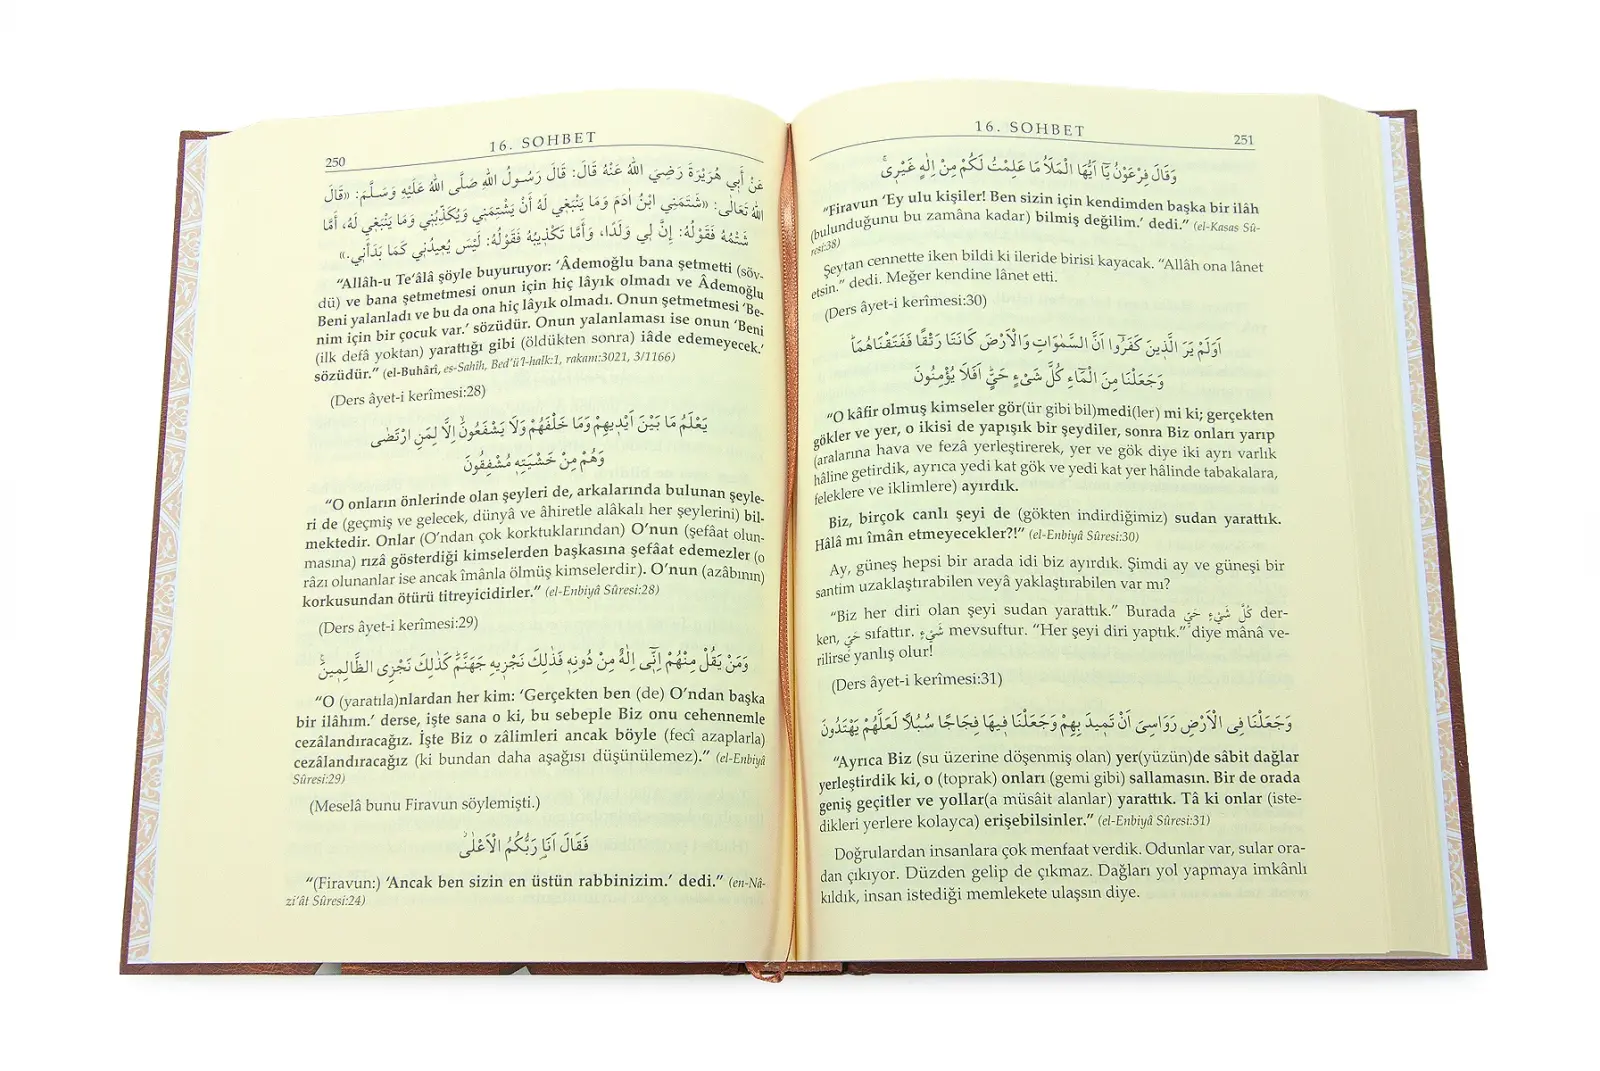 250
16. SOHBET
عَنْ أَبِي هُرَيْرَةَ رَضِيَ اللهُ عَنْهُ قَالَ: قَالَ رَسُولُ اللهِ صَلَّى اللهُ عَلَيْهِ وَسَلَّمَ: «قَالَ
اللهُ تَعَالٰى: «شَتَمَنِي ابْنُ اٰدَمَ وَمَا يَنْبَغِي لَهُ أَنْ يَشْتِمَنِي وَيُكَذِّبُنِي وَمَا يَنْبَغِي لَهُ، أَمَّا
شَتْمُهُ فَقَوْلُهُ: إِنَّ لِي وَلَدًا، وَأَمَّا تَكْذِيبُهُ فَقَوْلُهُ: لَيْسَ يُعِيدُنِي كَمَا بَدَأَنِي.»
“Allâh-u Te‘âlâ şöyle buyuruyor: ‘Âdemoğlu bana şetmetti (söv-
dü) ve bana şetmetmesi onun için hiç lâyık olmadı ve Âdemoğlu
Beni yalanladı ve bu da ona hiç lâyık olmadı. Onun şetmetmesi ‘Be-
nim için bir çocuk var.’ sözüdür. Onun yalanlaması ise onun ‘Beni
(ilk defâ yoktan) yarattığı gibi (öldükten sonra) iâde edemeyecek.’
sözüdür.” (el-Buhârî, es-Sahîh, Bed’ü’l-halk:1, rakam:3021, 3/1166)
(Ders âyet-i kerîmesi:28)
يَعْلَمُ مَا بَيْنَ اَيْدِيهِمْ وَمَا خَلْفَهُمْ وَلَا يَشْفَعُونَۙ اِلَّا لِمَنِ ارْتَضٰى
وَهُمْ مِنْ خَشْيَتِهِ مُشْفِقُونَ
“O onların önlerinde olan şeyleri de, arkalarında bulunan şeyle-
ri de (geçmiş ve gelecek, dünyâ ve âhiretle alâkalı her şeylerini) bil-
mektedir. Onlar (O’ndan çok korktuklarından) O’nun (şefâat olun-
masına) rızâ gösterdiği kimselerden başkasına şefâat edemezler (o
râzı olunanlar ise ancak îmânla ölmüş kimselerdir). O’nun (azâbının)
korkusundan ötürü titreyicidirler.” (el-Enbiyâ Sûresi:28)
(Ders âyet-i kerîmesi:29)
وَمَنْ يَقُلْ مِنْهُمْ اِنِّٓى اِلٰهٌ مِنْ دُونِهِ فَذٰلِكَ نَجْزِيهِ جَهَنَّمَؕ كَذٰلِكَ نَجْزِى الظَّالِمِينَ۟
“O (yaratıla)nlardan her kim: ‘Gerçekten ben (de) O’ndan başka
bir ilâhım.’ derse, işte sana o ki, bu sebeple Biz onu cehennemle
cezâlandıracağız. İşte Biz o zâlimleri ancak böyle (fecî azaplarla)
cezâlandıracağız (ki bundan daha aşağısı düşünülemez).” (el-Enbiyâ
Sûresi:29)
(Meselâ bunu Firavun söylemişti.)
فَقَالَ اَنَا۬ رَبُّكُمُ الْاَعْلٰىۘ
“(Firavun:) ‘Ancak ben sizin en üstün rabbinizim.’ dedi.” (en-Nâ-
zi‘ât Sûresi:24)
16. SOHBET
251
وَقَالَ فِرْعَوْنُ يَٓا اَيُّهَا الْمَلَاُ مَا عَلِمْتُ لَكُمْ مِنْ اِلٰهٍ غَيْرِىۚ
“Firavun ‘Ey ulu kişiler! Ben sizin için kendimden başka bir ilâh
(bulunduğunu bu zamâna kadar) bilmiş değilim.’ dedi.” (el-Kasas Sû-
resi:38)
Şeytan cennette iken bildi ki ileride birisi kayacak. “Allâh ona lânet
etsin.” dedi. Meğer kendine lânet etti.
(Ders âyet-i kerîmesi:30)
اَوَلَمْ يَرَ الَّذِينَ كَفَرُٓوا اَنَّ السَّمٰوَاتِ وَالْاَرْضَ كَانَتَا رَتْقًا فَفَتَقْنَاهُمَاؕ
وَجَعَلْنَا مِنَ الْمَٓاءِ كُلَّ شَىْءٍ حَىٍّؕ اَفَلَا يُؤْمِنُونَ
“O kâfir olmuş kimseler gör(ür gibi bil)medi(ler) mi ki; gerçekten
gökler ve yer, o ikisi de yapışık bir şeydiler, sonra Biz onları yarıp
(aralarına hava ve fezâ yerleştirerek, yer ve gök diye iki ayrı varlık
hâline getirdik, ayrıca yedi kat gök ve yedi kat yer hâlinde tabakalara,
feleklere ve iklimlere) ayırdık.
Biz, birçok canlı şeyi de (gökten indirdiğimiz) sudan yarattık.
Hâlâ mı îmân etmeyecekler?!” (el-Enbiyâ Sûresi:30)
Ay, güneş hepsi bir arada idi biz ayırdık. Şimdi ay ve güneşi bir
santim uzaklaştırabilen veyâ yaklaştırabilen var mı?
“Biz her diri olan şeyi sudan yarattık.” Burada كُلَّ شَيْءٍ حَيٍّ der-
ken, حَيٍّ sıfattır. شَيْءٍ mevsuftur. “Her şeyi diri yaptık.” diye mânâ ve-
rilirse yanlış olur!
(Ders âyet-i kerîmesi:31)
وَجَعَلْنَا فِى الْاَرْضِ رَوَاسِىَ اَنْ تَمِيدَ بِهِمْ وَجَعَلْنَا فِيهَا فِجَاجًا سُبُلًا لَعَلَّهُمْ يَهْتَدُونَ
“Ayrıca Biz (su üzerine döşenmiş olan) yer(yüzün)de sâbit dağlar
yerleştirdik ki, o (toprak) onları (gemi gibi) sallamasın. Bir de orada
geniş geçitler ve yollar(a müsâit alanlar) yarattık. Tâ ki onlar (iste-
dikleri yerlere kolayca) erişebilsinler.” (el-Enbiyâ Sûresi:31)
Doğrulardan insanlara çok menfaat verdik. Odunlar var, sular ora-
dan çıkıyor. Düzden gelip de çıkmaz. Dağları yol yapmaya imkânlı
kıldık, insan istediği memlekete ulaşsın diye.